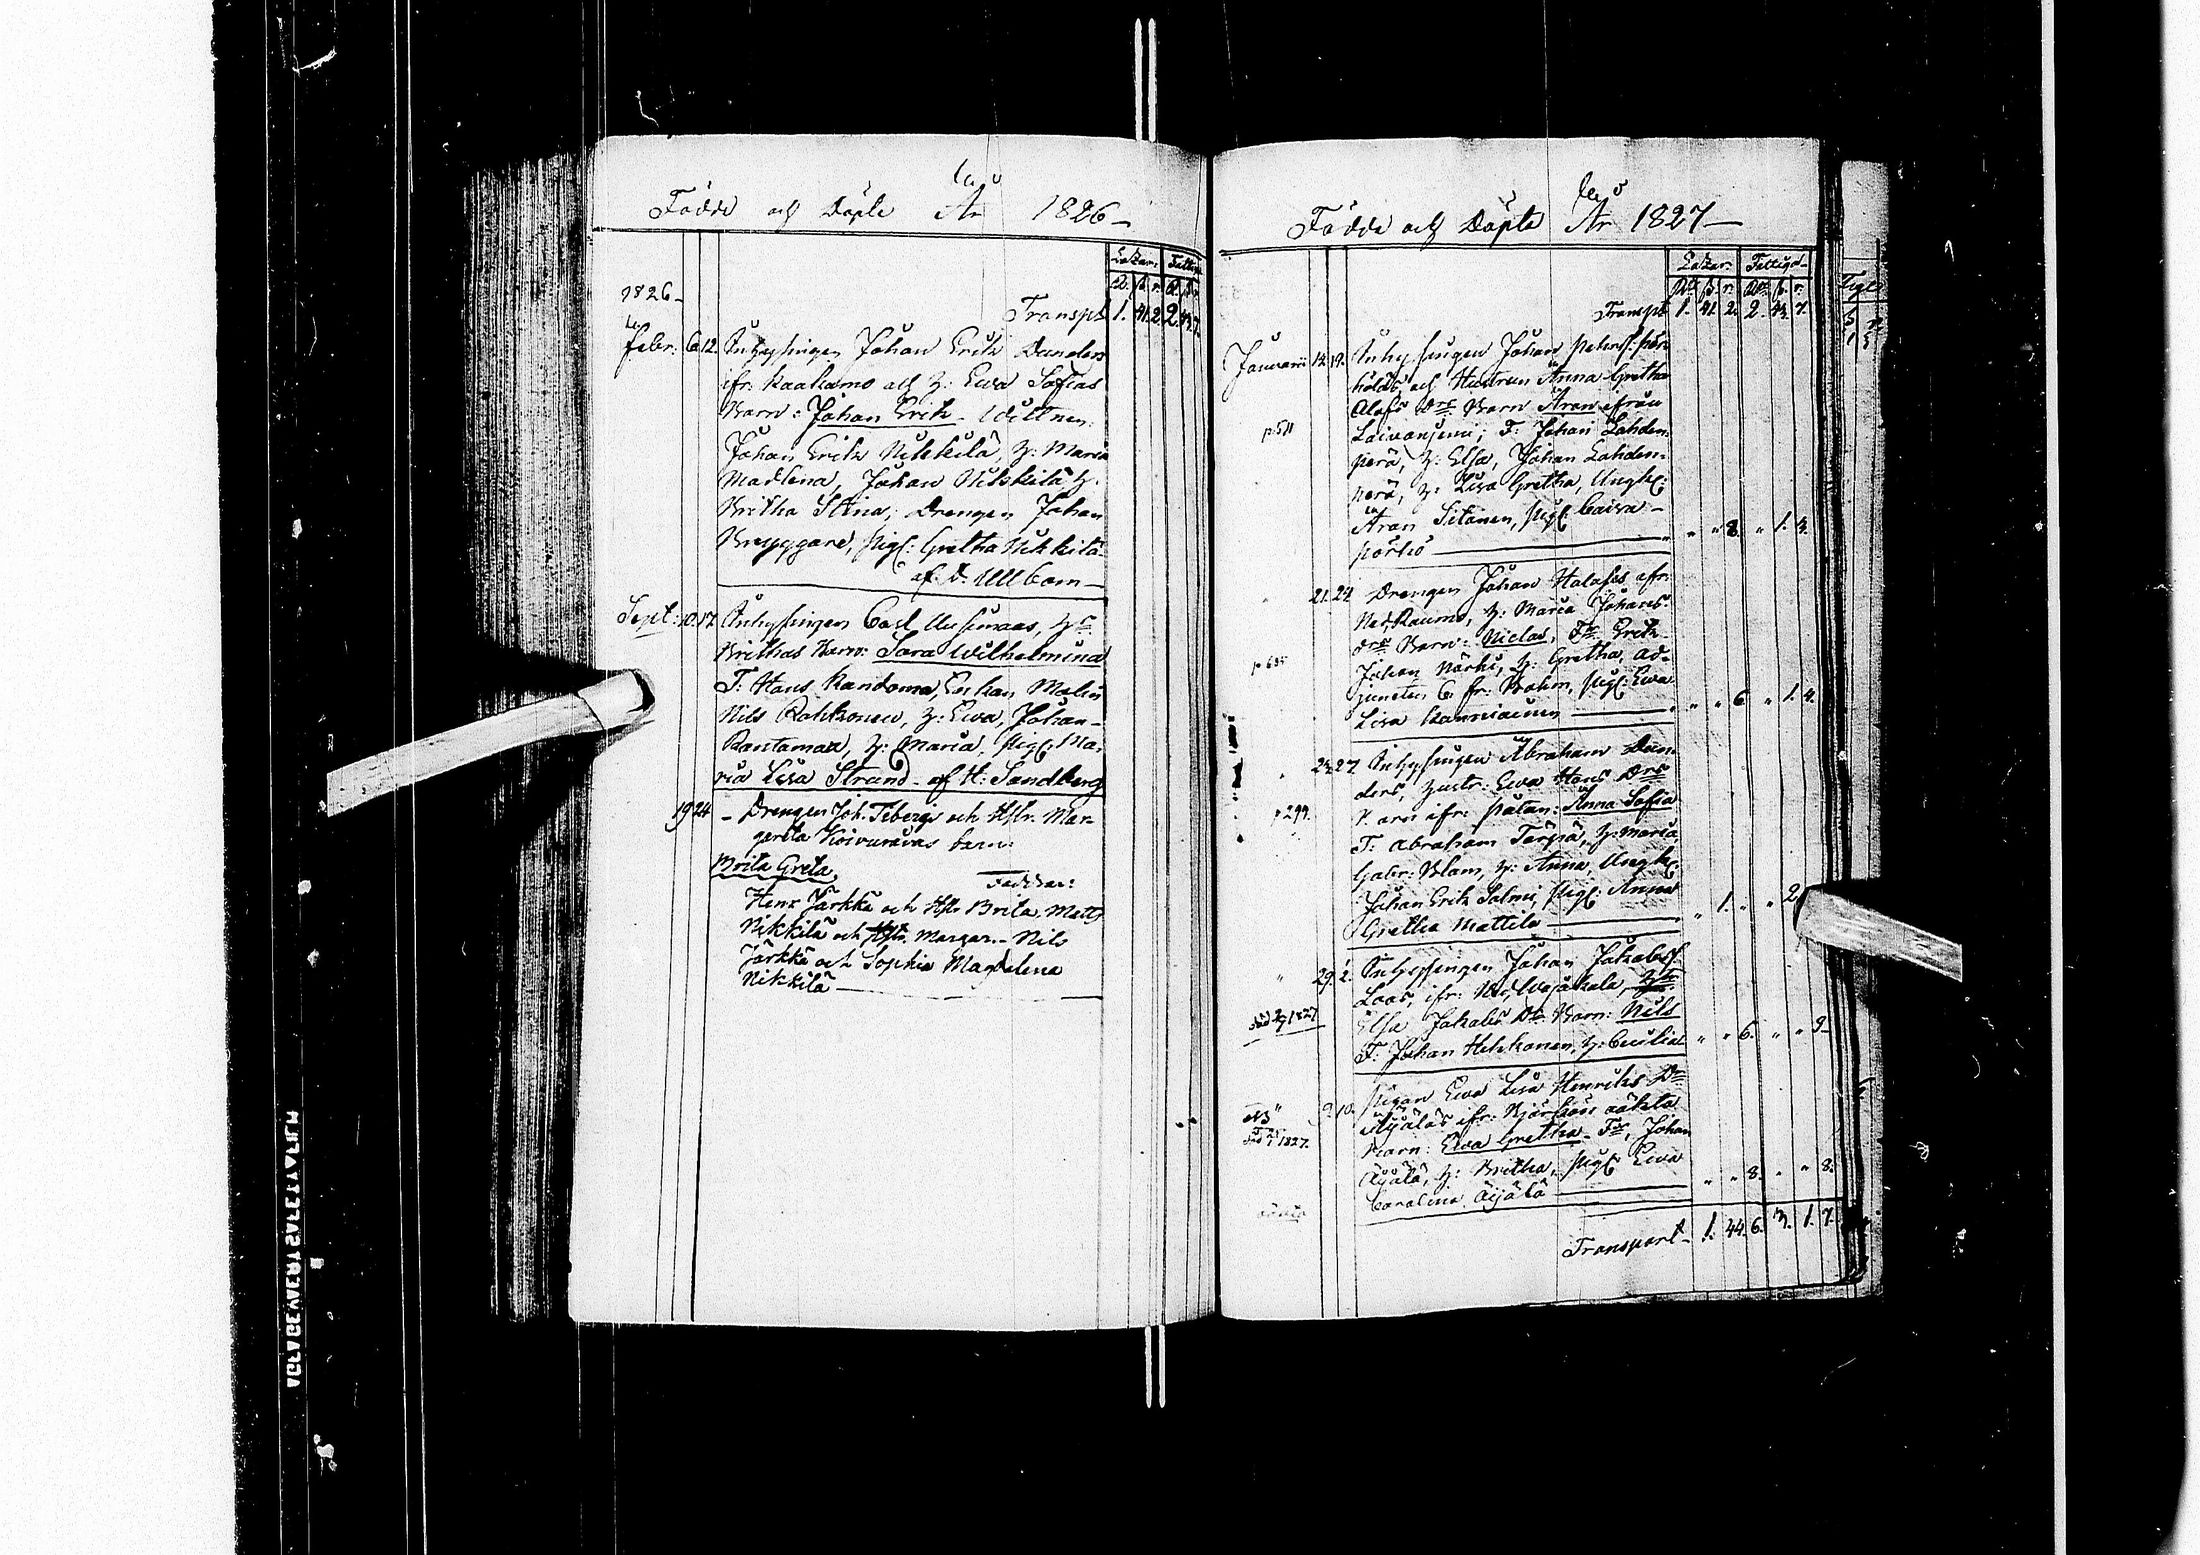 Födde och Döpte År 1826
Lazar: Fattig
1826
Transpt 1. 41. 2. 2. 43. 7.
Febr: 6 12. Inhysingen Johan Erik Danders
ifr: Kaakamo och H: Ewa Sofias
Barn: Johan Erik. Wittnen:
Johan Erik Nikkilä, H: Maria
Madlena, Johan Nikkilä H.
Britha Stina, Drengen Johan
Bryggare, Pig: Gretha Nikkilä
af. D. Ullbom
Sept: 10. 17. Inhysingen Carl
Brithas Barn: Sara Wilhelmina
T: Hans Kandoma, Enkan Malin
Nils Rohkonen, H: Ewa, Johan
Rantamaa, H: Maria, Pig: Ma-
ria Lisa Strand. af H: Sandberg
19 24 Drengen Joh. Teberg och Hstr. Mar-
gereta Koivuravas barn:
Brita Greta
Faddrar:
Henr Järkkä och Hstr Brita. Matts
Nikkilä och Hstr. Margar. Nils
Järkkä och Sophia Magdelena
Nikkilä
Födde och Döpte År 1827
Lazar: Fattigd
Transpt 1. 41. 2. 2. 43. 7.
Januarii 14. 19. Inhysingen Johan Peterss:
och Hustrun Anna Gretha
Olofs Drs Barn Aron ifrån
Laivaniemi; F: Johan Lahden-
perä, H: Elsa, Johan Lahden-
perä, H: Lisa Gretha, Ungk:
Aron Sitanen, Pig: Caisa
8. 1. 4.
21. 24. Drengen Johan ifr:
Ned Raumo, H: Maria Johans
drs Barn: Niclas, Fr Erik
Johan H: Gretha, ad-
juncten C. Fr: Brohm, Pig: Ewa
Lisa Kanniainen 6 1. 4.
24. 27 Inhysingen Abraham Dan-
ders, Hustr: Ewa Hans Drs
Barn ifr: Anna Sofia
p 299. T: Abraham Törpä, H: Maria
Gabr: Blom, H: Anna, Ungk:
Johan Erik Salmi, Pig: Anna
Gretha Mattila 1. 2.
29. 2. Inhysingen Johan Jakobss
Laas, ifr: Ned Wojakala,
Elsa Jakobs Dr Barn: Nils
F: Johan Hekkonen, H: Cecilia 6. 9
9. 10. Pigan Ewa Lisa Henriks Dr
Äijäläs ifr: oäkta
Barn: Ewa Gretha. Fr, Johan
Äijälä, H: Britha, Pig: Ewa
Carolina Äijälä 8. 8.
Transport 1. 44. 6. 3. 1. 7.